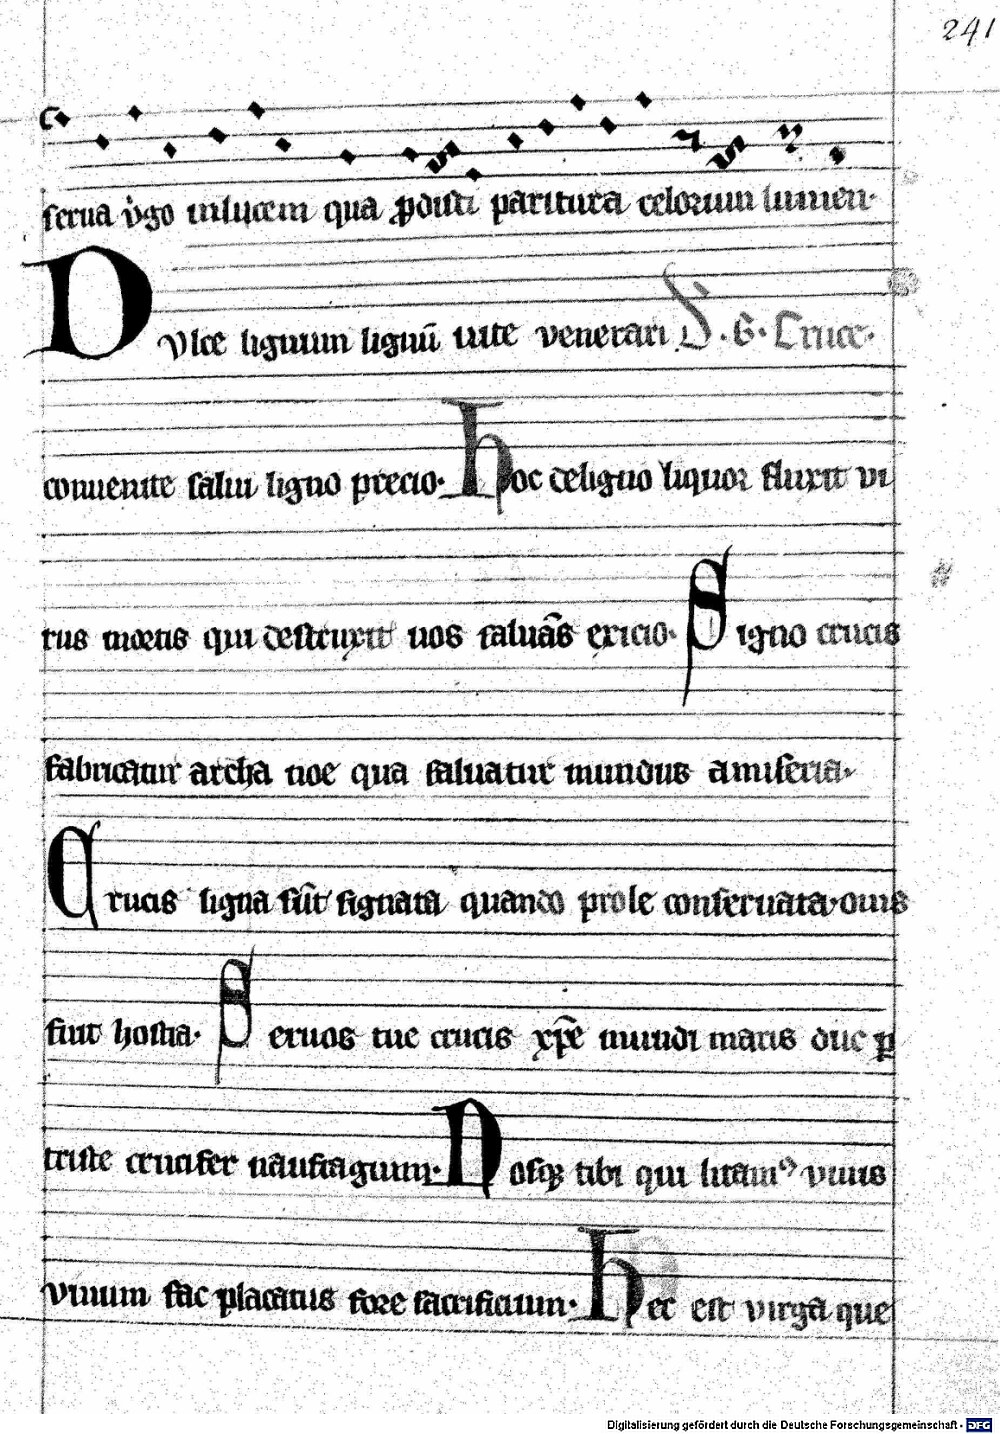 241
serua v̓go inlucem qua ꝓdisti paritura celorum lumen·
Dulce lignum lignū uite venerari S. G. Cruce·
conuenite salui ligno precio· Hoc deligno liquor fluxit vi
rus mortis qui destruxit uos saluās exicio· Signo crucis
fabricatur archa noe qua saluatur mundus amiseria·
Crucis ligna sūt signata quando prole conseruata· ouis
fuit hostia· Seruos tue crucis xp̄e mundi maris duc p̱
triste crucifer naufragium· Nosqꝫ tibi qui litamꝰ viuis
viuum fac placatus fore sacrificium· Hec est virga que
Digitalisierung gefördert durch die Deutsche Forschungsgemeinschaft - DFG